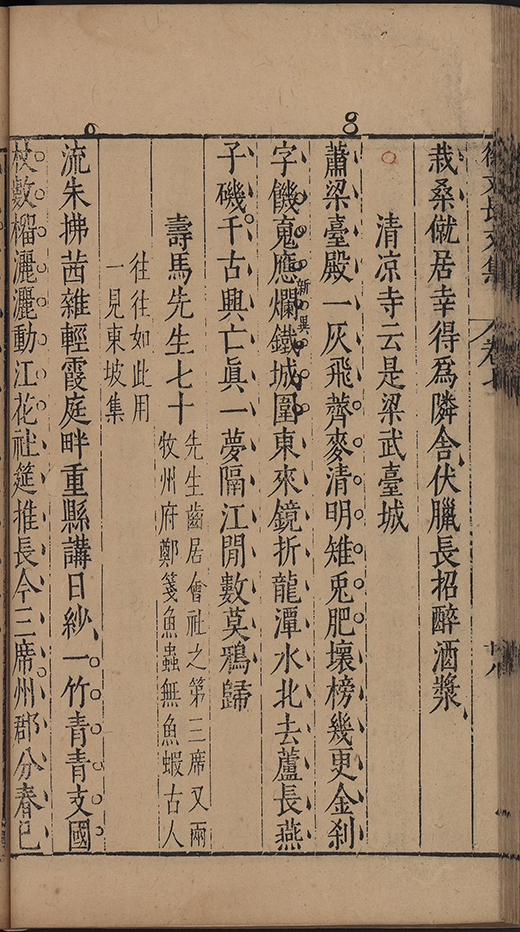 徐文長文集
卷七
十八
栽桑僦居幸得爲隣舍伏臘長招醉酒漿
清凉寺云是梁武臺城
蕭梁臺殿一灰飛薺麥清明雉兎肥壞榜幾更金刹
字饑䰟應爛鐵城圍東來鏡折龍潭水北去蘆長燕
新異
子磯千古興亡眞一夢隔江閒數莫鴉歸
壽馬先生七十
先生齒居會社之第三席又兩
牧州府鄭箋魚蟲無魚蝦古人
徃徃如此用
一見東坡集
流朱拂茜雜輕霞庭畔重縣講日紗一竹青青支國
杖數榴灑灑動江花社筵推長今三席州郡分春已